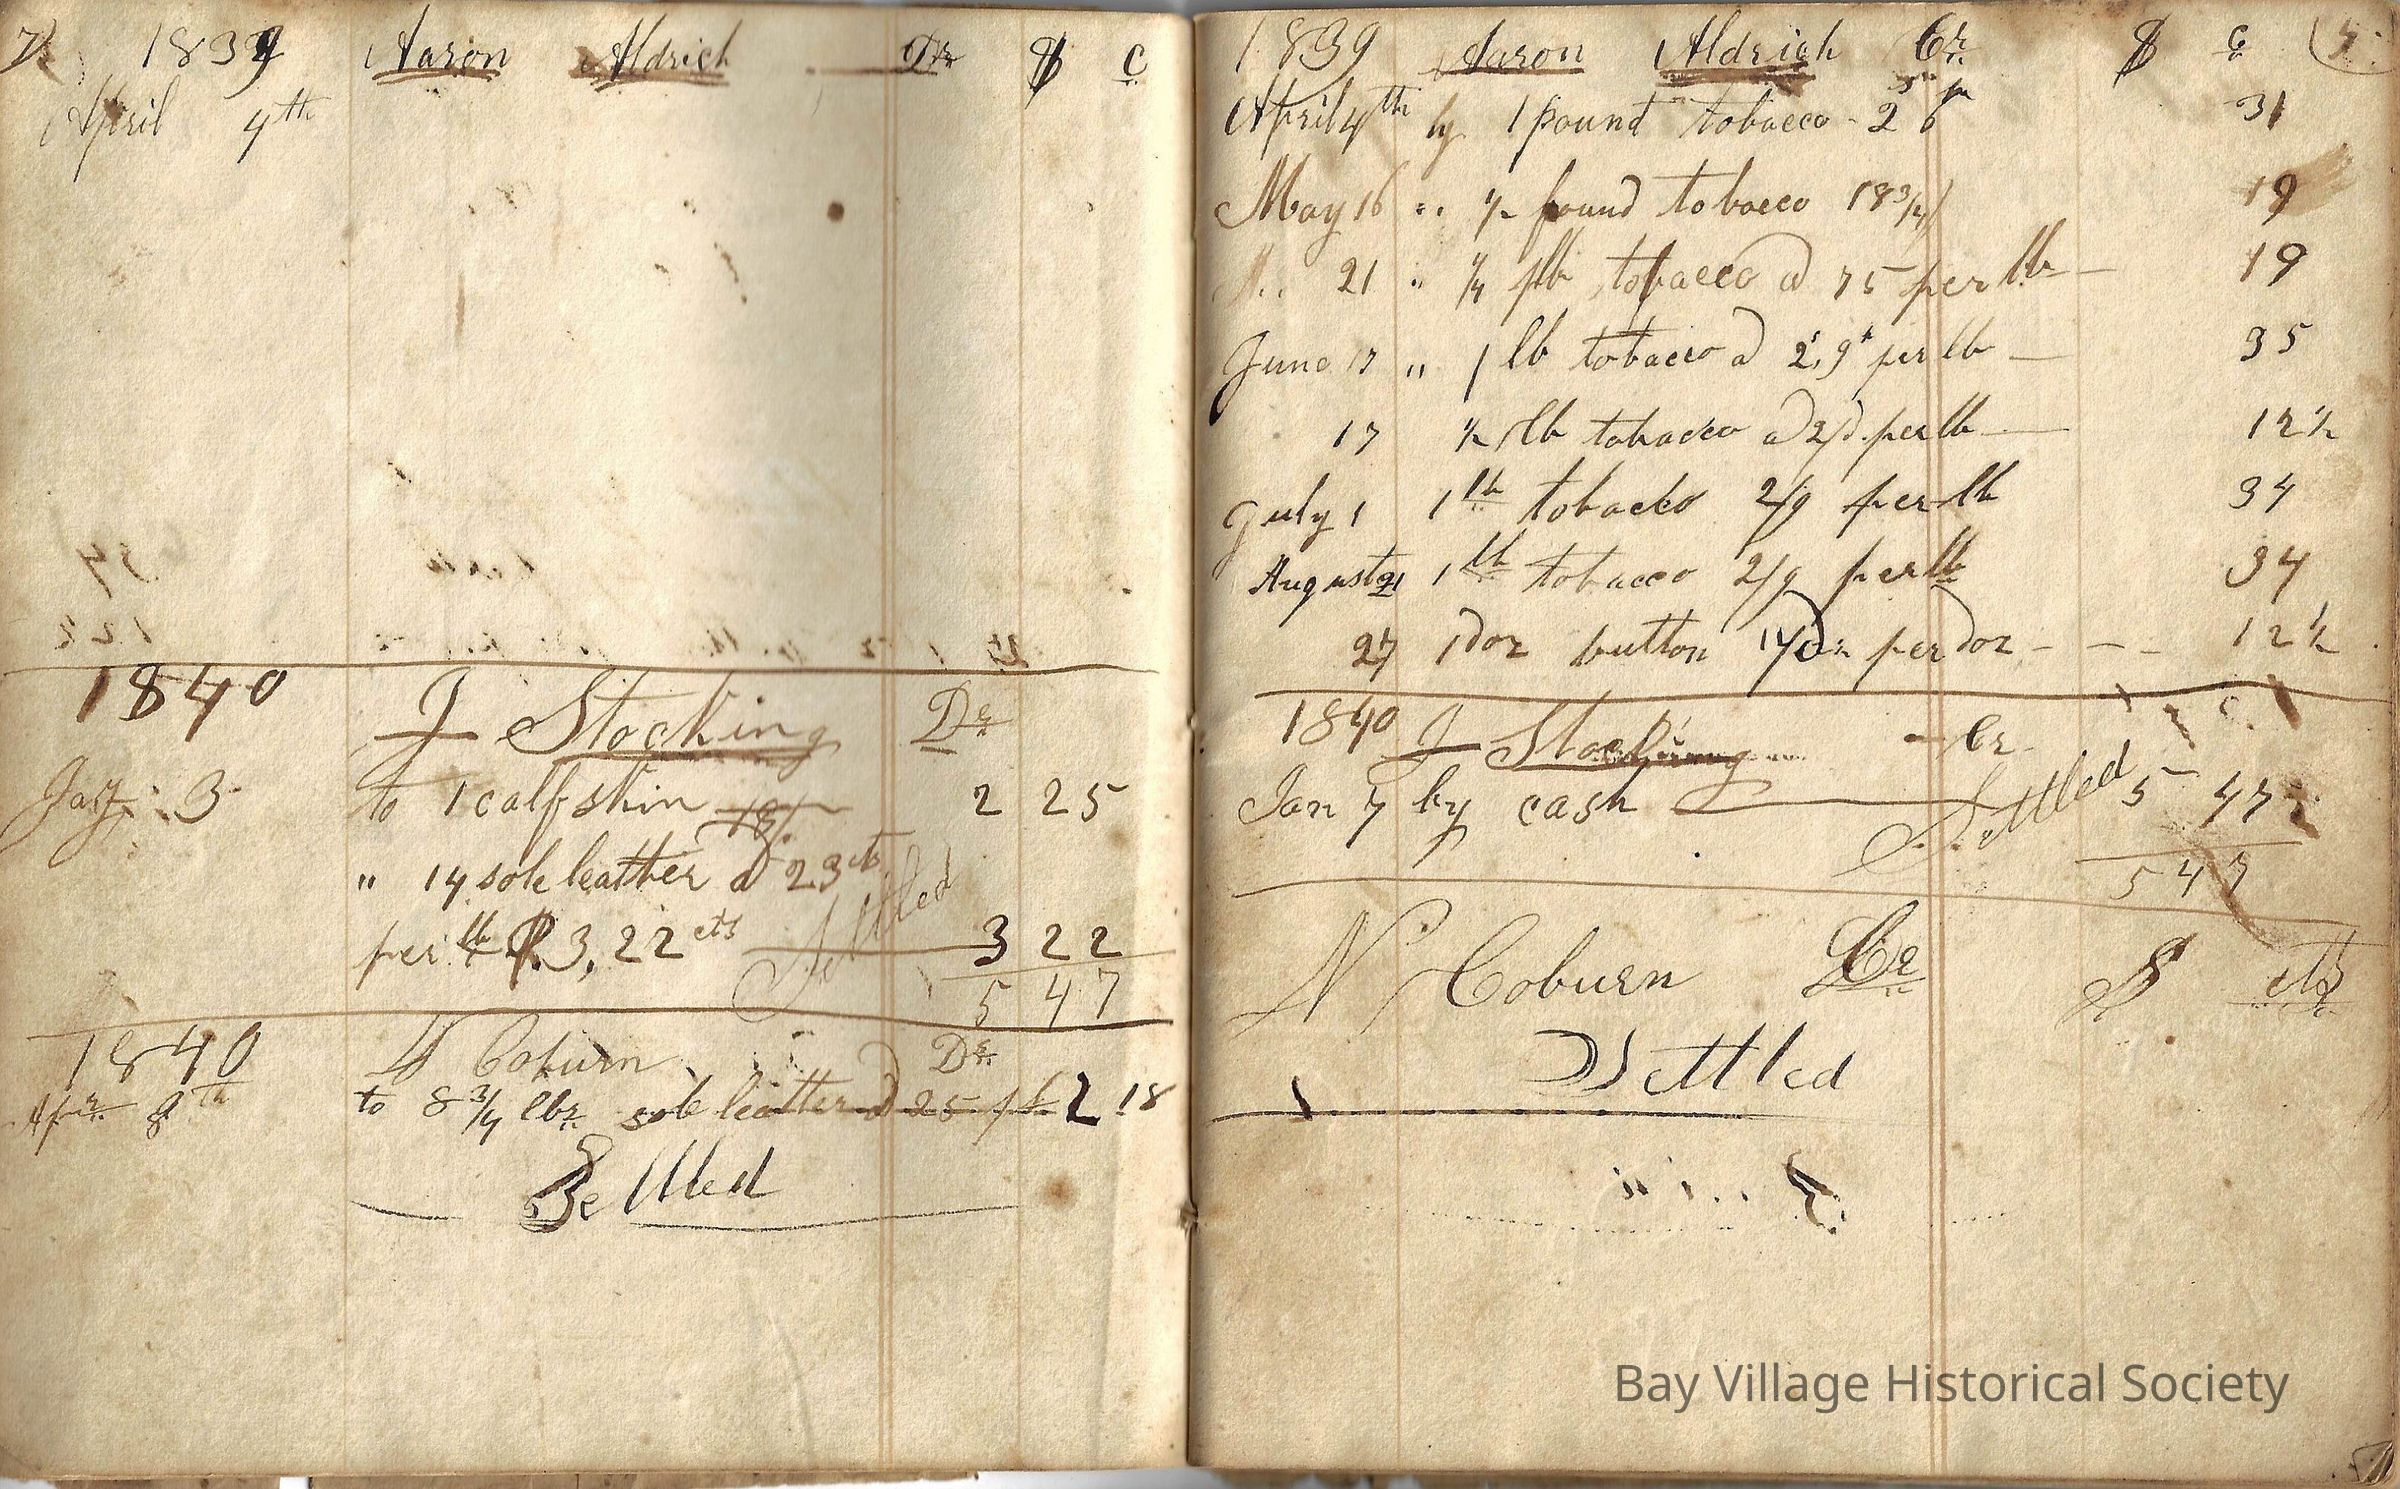 1839 Aaron Aldrich Dr $ c
April 4th
1840 J Stocking Dr
Jay 3 to 1 calfskin 18/ 2 25
" 14 sole leather a 23 cts
per lb 3,22 cts Settled 3 22
5 47
1840 N Coburn Dr
Apr 8th to 8 3/4 lbs sole leather a 25 2 18
Settled
1839 Aaron Aldrich Cr $ c
April 4th by 1 pound tobacco - 2 6 31
May 16 " 1/4 pound tobacco 18 3/4 19
21 " 1/4 lb tobacco a 75 per lb 19
June 17 " 1 lb tobacco a 2s,9 per lb 35
17 1/2 lb tobacco a 2/ per lb 12 1/2
July 1 1 lb tobacko 2/9 per lb 34
August 21 1 lb tobacco 2/9 per lb 34
27 1 doz button per doz - - - 12 1/2
1840 J Stocking Cr
Jan 7 by cash Settled 5 47
5 47
N Coburn Cr $ cts
Settled
Bay Village Historical Society